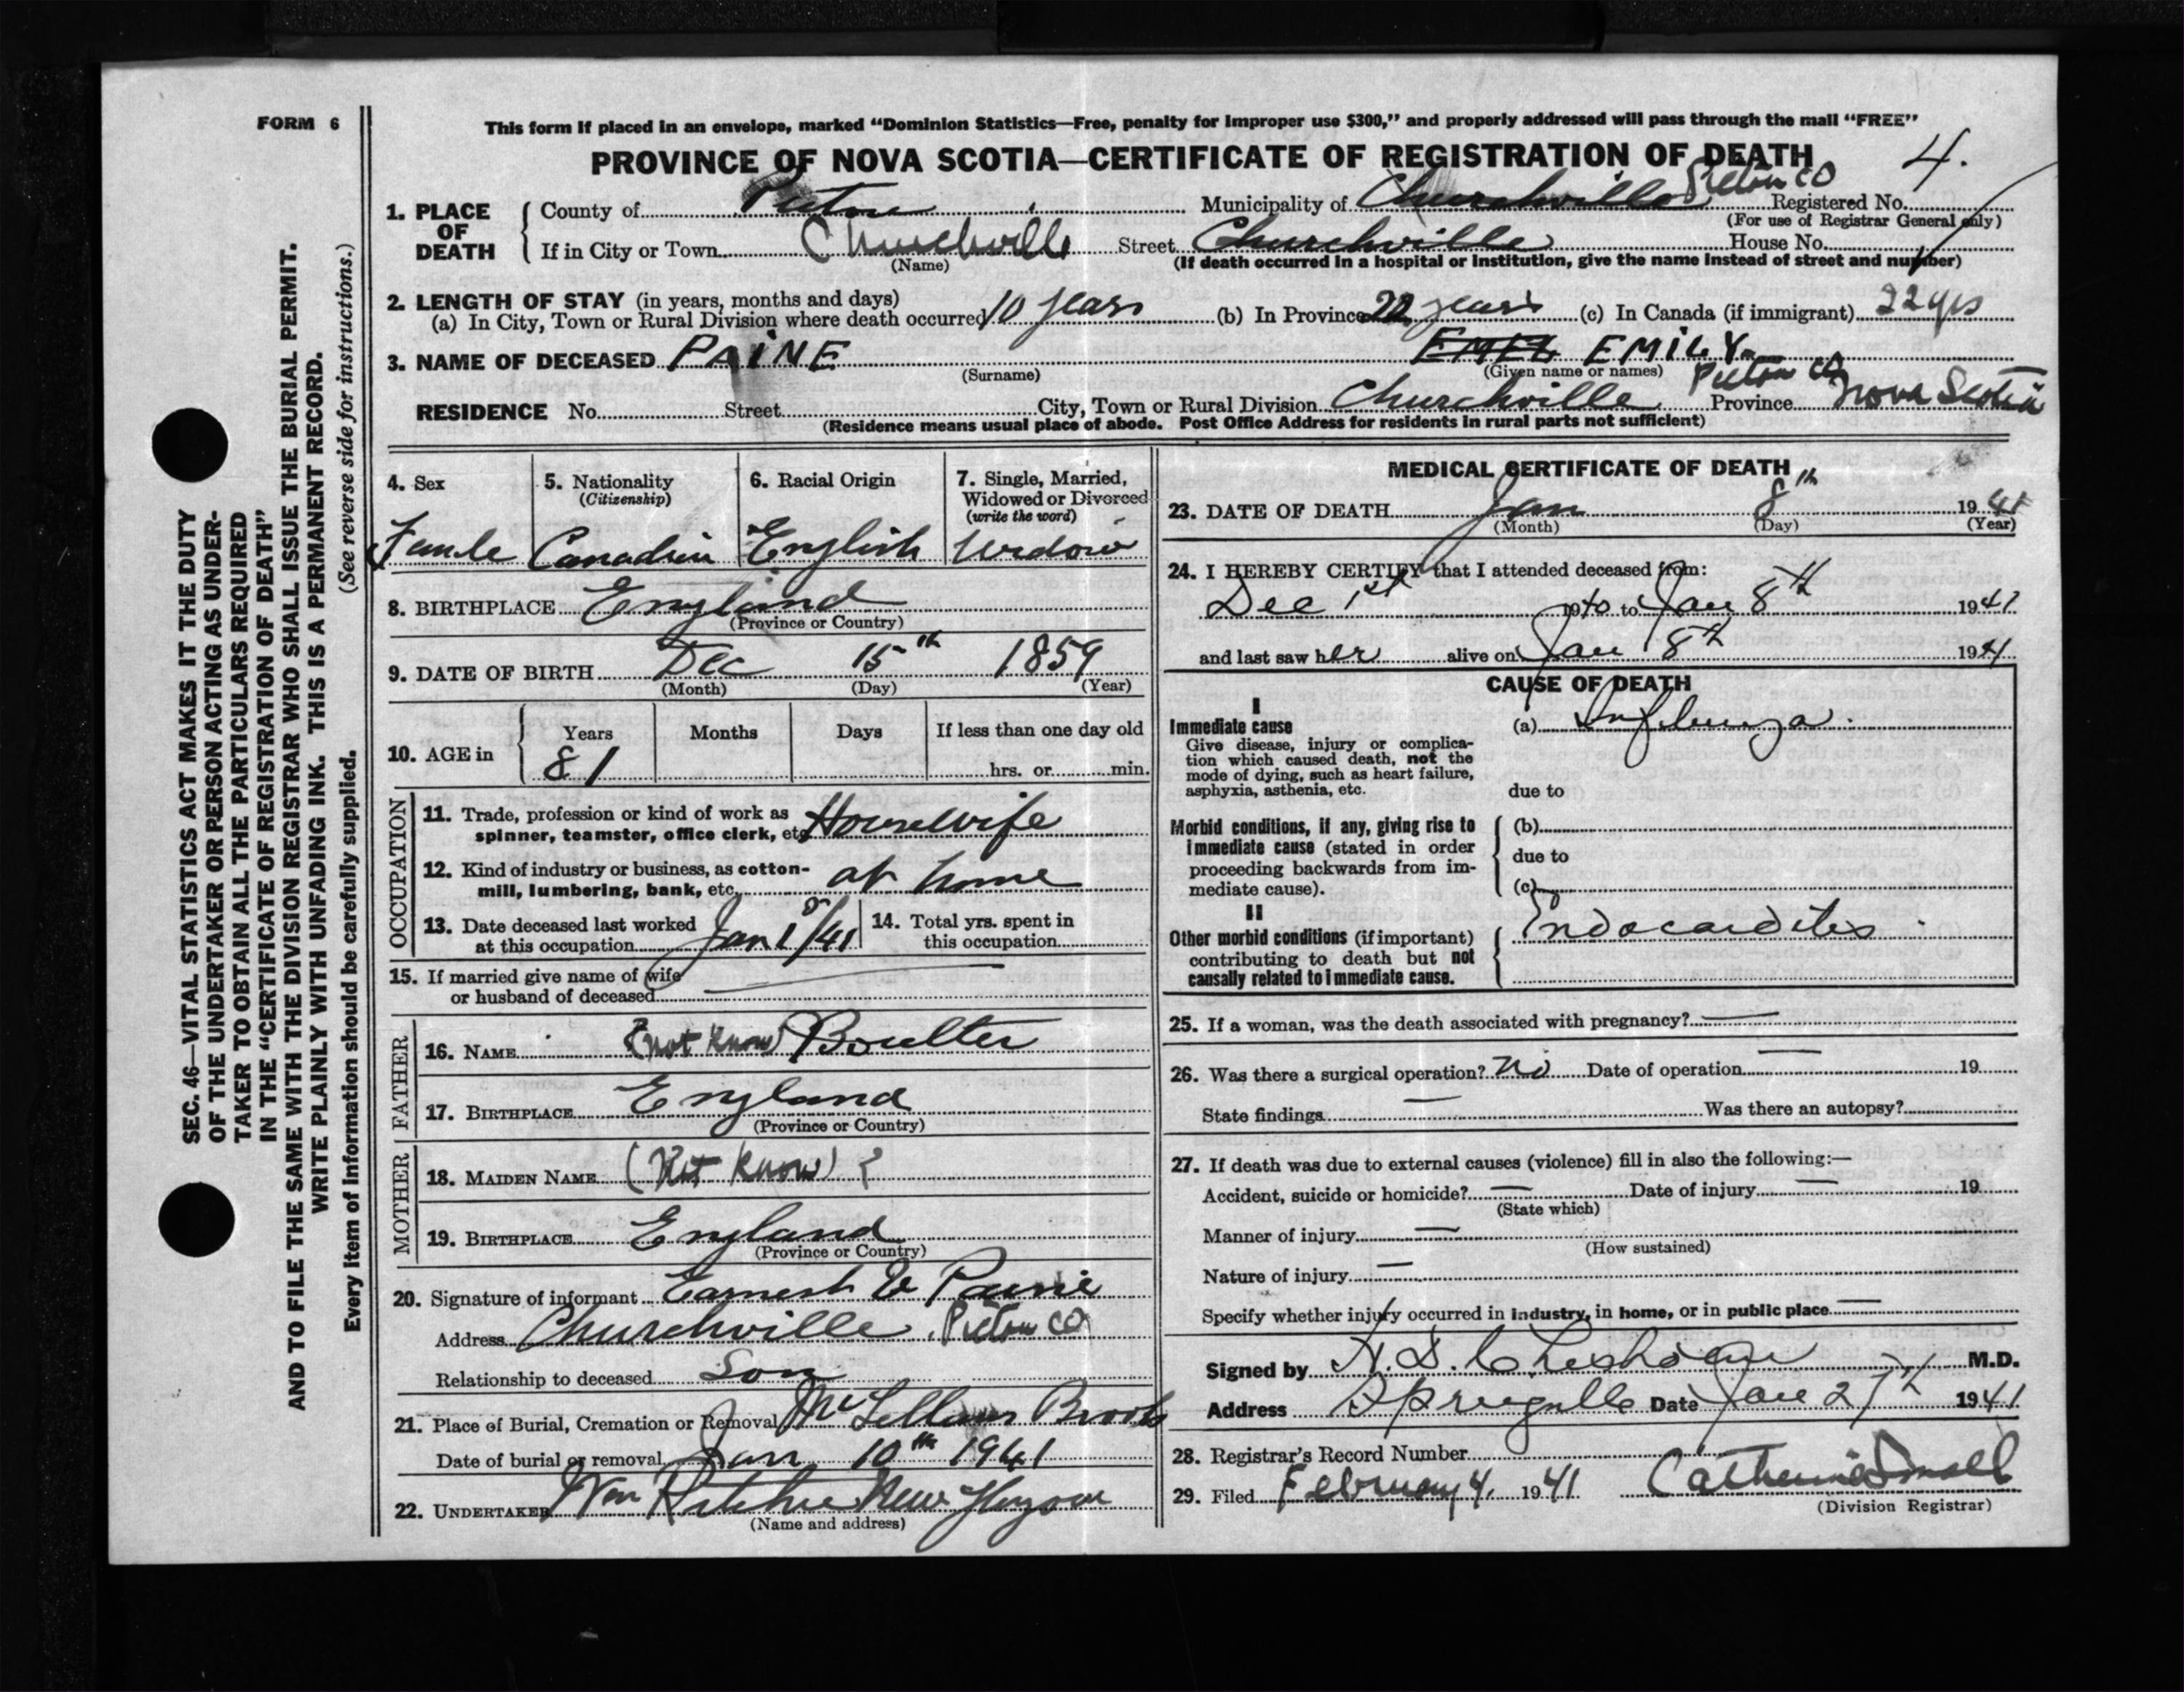 FORM 6
This form if placed in an envelope, marked “Dominion Statistics—Free, penalty for improper use $300,” and properly addressed will pass through the mail “FREE”
PROVINCE OF NOVA SCOTIA—CERTIFICATE OF REGISTRATION OF DEATH 4.
1. PLACE OF DEATH
County of Pictou Municipality of Churchville Pictou Co Registered No.
(For use of Registrar General only)
If in City or Town Churchville Street Churchville House No.
(Name) (If death occurred in a hospital or institution, give the name instead of street and number)
2. LENGTH OF STAY (in years, months and days)
(a) In City, Town or Rural Division where death occurred 10 years (b) In Province 22 years (c) In Canada (if immigrant) 22 yrs
3. NAME OF DECEASED PAINE EMILY
(Surname) (Given name or names)
RESIDENCE No. Street City, Town or Rural Division Churchville Pictou Co Province Nova Scotia
(Residence means usual place of abode. Post Office Address for residents in rural parts not sufficient)
SEC. 46—VITAL STATISTICS ACT MAKES IT THE DUTY
OF THE UNDERTAKER OR PERSON ACTING AS UNDER-
TAKER TO OBTAIN ALL THE PARTICULARS REQUIRED
IN THE “CERTIFICATE OF REGISTRATION OF DEATH”
AND TO FILE THE SAME WITH THE DIVISION REGISTRAR WHO SHALL ISSUE THE BURIAL PERMIT.
WRITE PLAINLY WITH UNFADING INK. THIS IS A PERMANENT RECORD.
Every item of information should be carefully supplied. (See reverse side for instructions.)
4. Sex
Female
5. Nationality
(Citizenship)
Canadian
6. Racial Origin
English
7. Single, Married,
Widowed or Divorced
(write the word)
Widow
8. BIRTHPLACE England
(Province or Country)
9. DATE OF BIRTH Dec 15th 1859
(Month) (Day) (Year)
10. AGE in Years Months Days If less than one day old
81 hrs. or min.
OCCUPATION
11. Trade, profession or kind of work as
spinner, teamster, office clerk, etc. Housewife
12. Kind of industry or business, as cotton-
mill, lumbering, bank, etc. at home
13. Date deceased last worked
at this occupation Jan 1/41
14. Total yrs. spent in
this occupation
15. If married give name of wife
or husband of deceased
FATHER
16. NAME (not know) Boulter
17. BIRTHPLACE England
(Province or Country)
MOTHER
18. MAIDEN NAME (Not Know)
19. BIRTHPLACE England
(Province or Country)
20. Signature of informant Earnest E Paine
Address Churchville, Pictou Co
Relationship to deceased Son
21. Place of Burial, Cremation or Removal McLellans Brook
Date of burial or removal Jan 10th 1941
22. UNDERTAKER Wm Ritchie New Glasgow
(Name and address)
MEDICAL CERTIFICATE OF DEATH
23. DATE OF DEATH Jan 8th 1941
(Month) (Day) (Year)
24. I HEREBY CERTIFY that I attended deceased from:
Dec 1st 1940 to Jan 8th 1941
and last saw her alive on Jan 8th 1941
CAUSE OF DEATH
I
Immediate cause (a) Influenza.
Give disease, injury or complica-
tion which caused death, not the
mode of dying, such as heart failure,
asphyxia, asthenia, etc. due to
Morbid conditions, if any, giving rise to
immediate cause (stated in order
proceeding backwards from im-
mediate cause).
(b)
due to
(c)
II
Other morbid conditions (if important)
contributing to death but not
causally related to immediate cause.
Endocarditis
25. If a woman, was the death associated with pregnancy? —
26. Was there a surgical operation? No Date of operation — 19
State findings — Was there an autopsy?
27. If death was due to external causes (violence) fill in also the following:—
Accident, suicide or homicide? — Date of injury — 19
(State which)
Manner of injury —
(How sustained)
Nature of injury —
Specify whether injury occurred in industry, in home, or in public place —
Signed by M.D.
Address Date Jan 27th 1941
28. Registrar's Record Number
29. Filed February 4, 1941 Catherine Small
(Division Registrar)